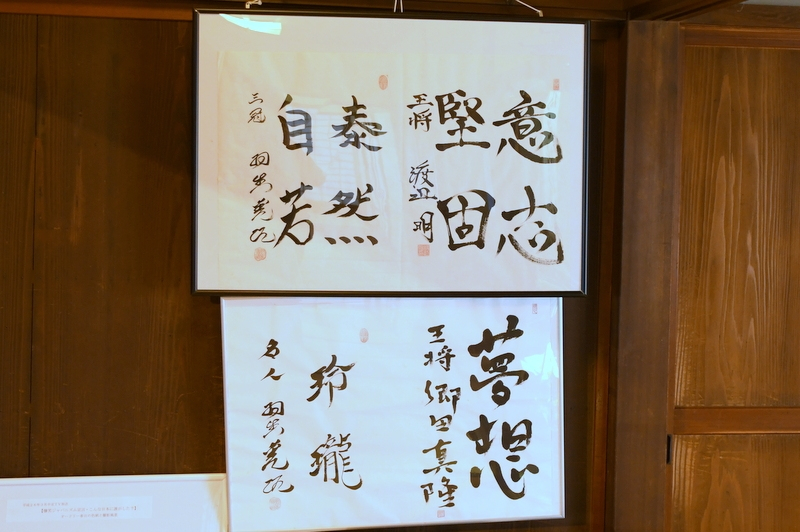 意志
堅固
王将 渡辺 明
泰然
自若
三冠 羽生善治
夢想
王将 郷田真隆
玲瓏
名人 羽生善治